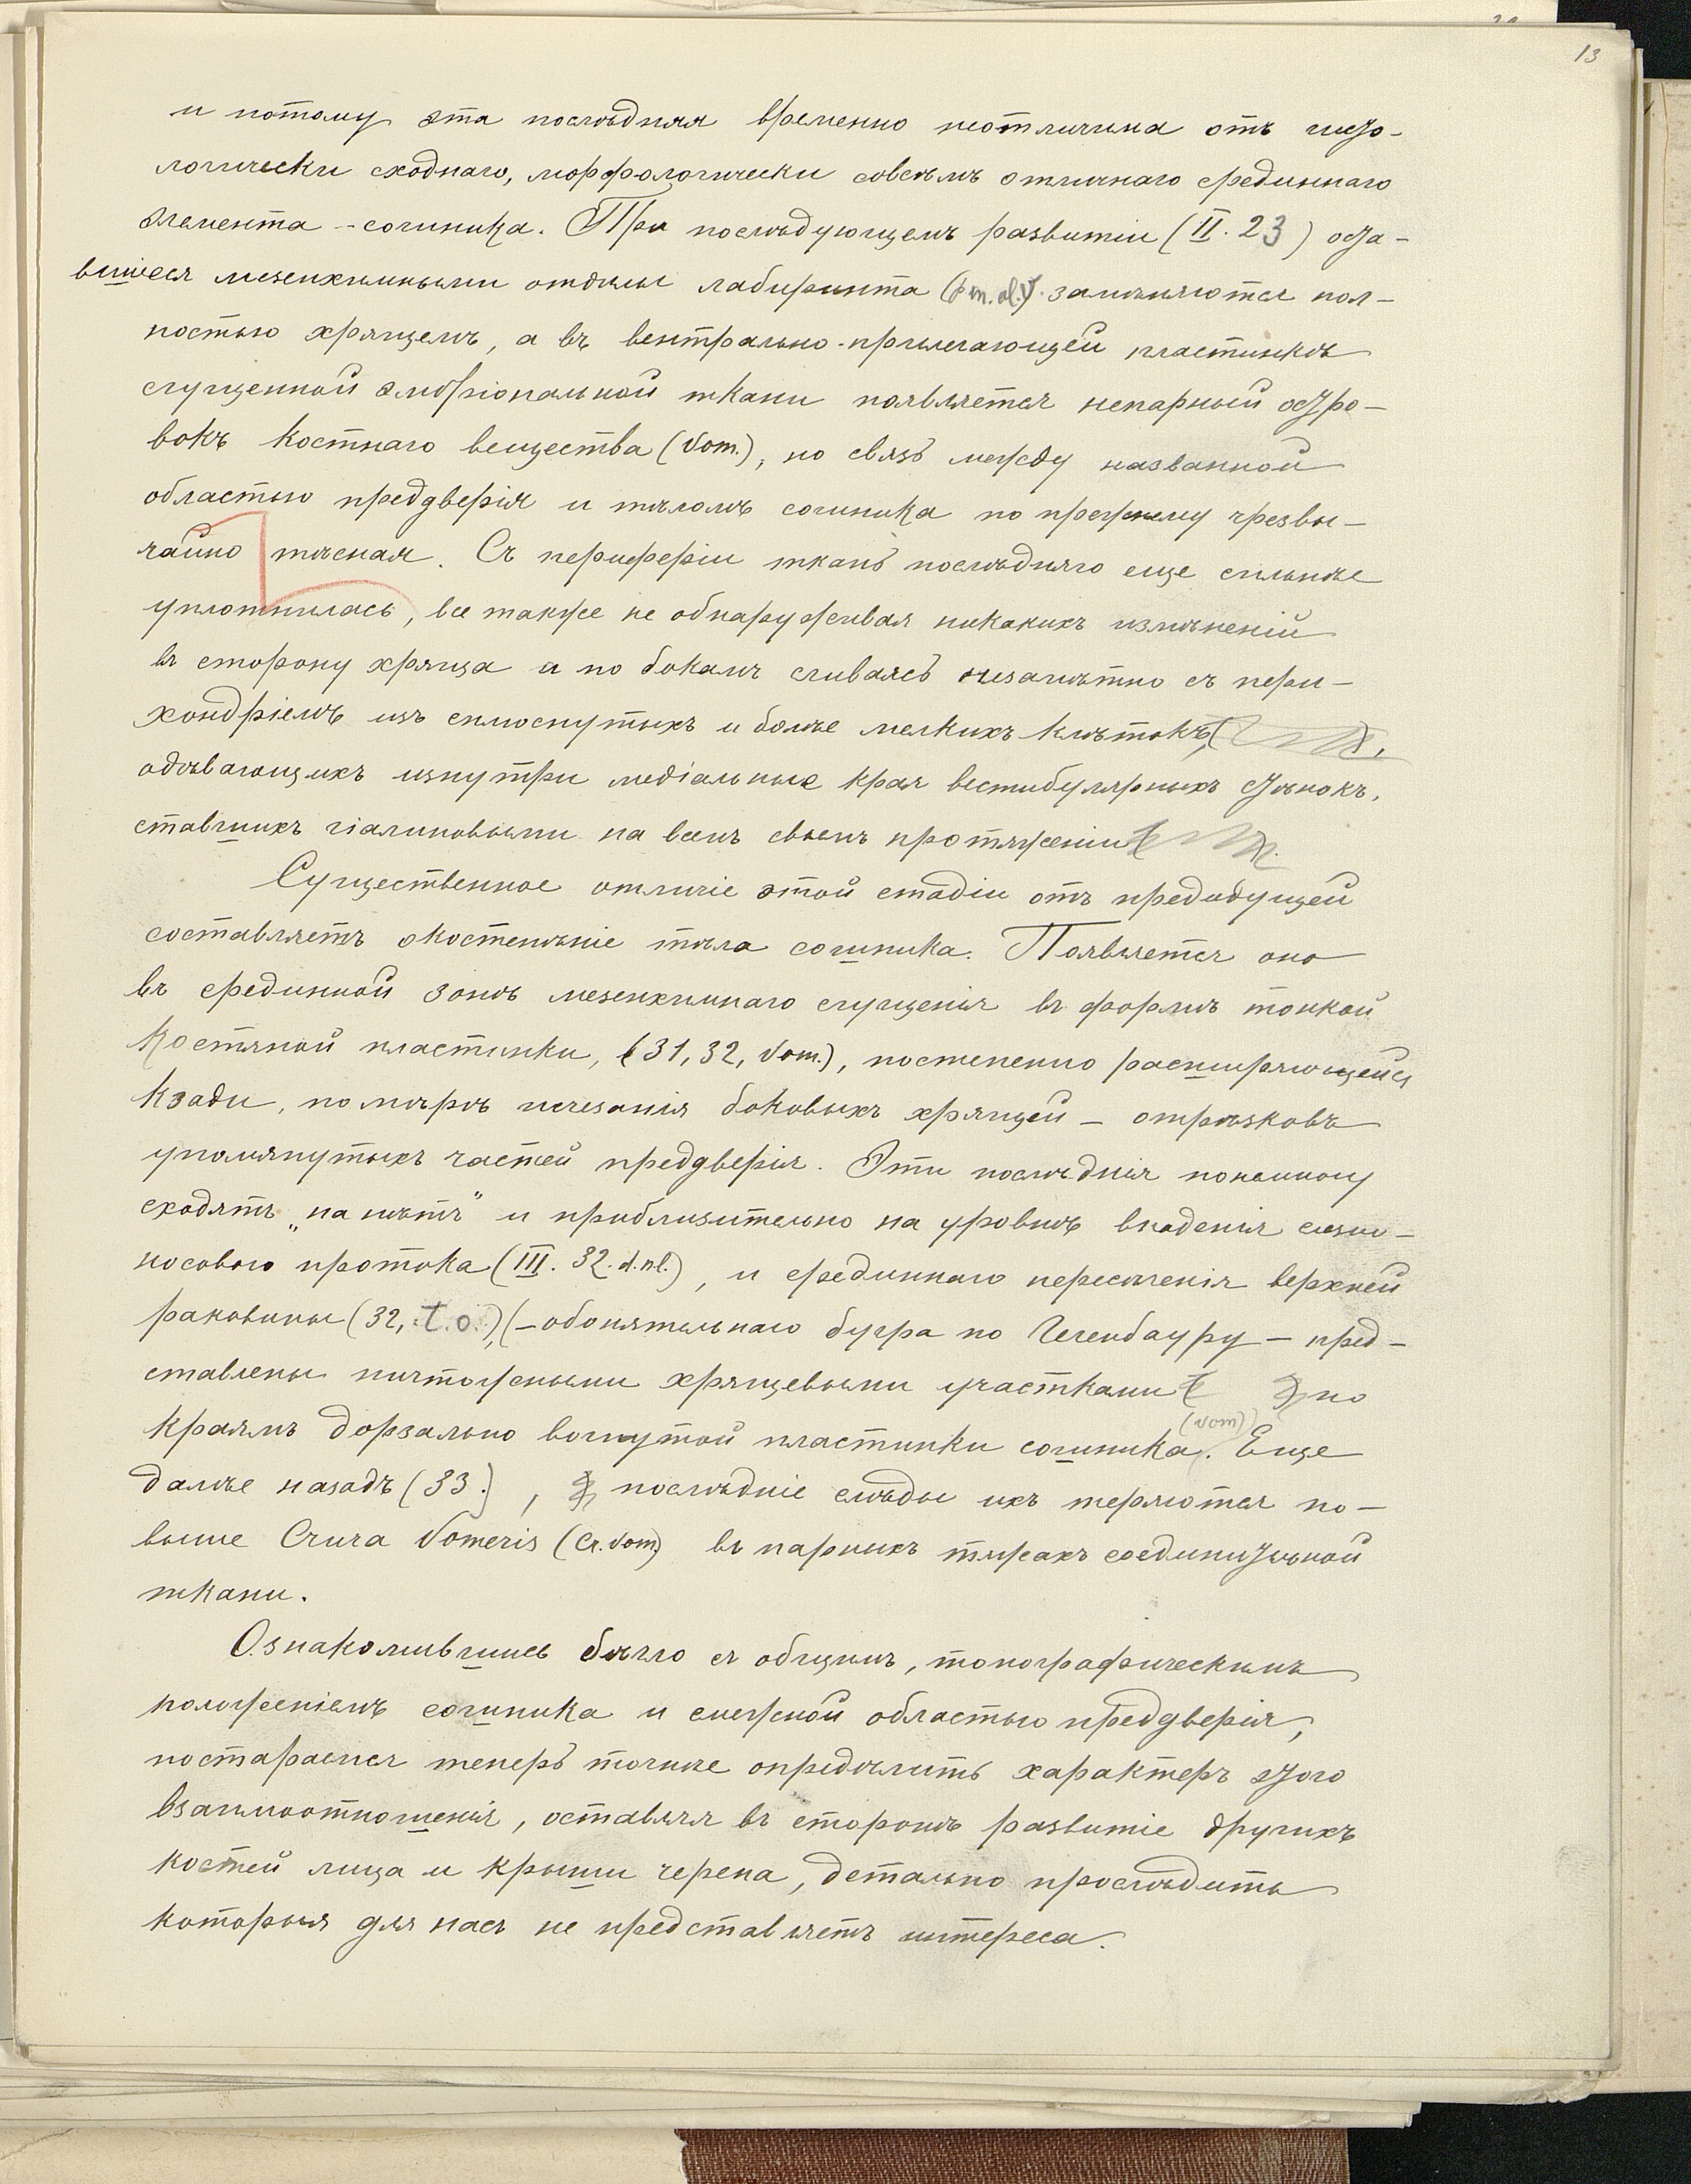 13
и потому эта послѣдняя временно неотличима отъ гисто-
логически сходнаго, морфологически совсѣмъ отличнаго срединнаго
элемента - сошника. При послѣдующемъ развитіи (II. 23) оста-
вшіеся мезенхимными отдѣлы лабиринта замѣняются пол-
ностью хрящемъ, а въ вентрально-прилегающей пластинкѣ
сгущенной эмбріональной ткани появляется непарный остро-
вокъ костнаго вещества (Vom.), но связь между названной
областью предверія и тѣломъ сошника по прежнему чрезвы-
чайно тѣсная. Съ периферіи ткань послѣдняго еще сильнѣе
уплотнилась, все также не обнаруживая никакихъ измѣненій
въ сторону хряща и по бокамъ сливаясь незамѣтно съ пери-
хондріемъ изъ сплюснутыхъ и болѣе мелкихъ клѣтокъ,
одѣвающихъ изнутри медіальные края вестибулярныхъ стѣнокъ,
ставшихъ гіалиновыми на всемъ своемъ протяженіи.
Существенное отличіе этой стадіи отъ предыдущей
составляетъ окостенѣніе тѣла сошника. Появляется оно
въ срединной зонѣ мезенхимнаго сгущенія въ формѣ тонкой
костяной пластинки, (31, 32, Vom.), постепенно расширяющейся
кзади, по мѣрѣ исчезанія боковыхъ хрящей - отрѣзковъ
упомянутыхъ частей предверія. Эти послѣднія понемногу
сходятъ „на нѣтъ" и приблизительно на уровнѣ впаденія слезно-
носового протока (III. 32. d.nl.), и срединнаго пересѣченія верхней
раковины (32, t.o.), (-обонятельнаго бугра по Гегенбауру - пред-
ставлены ничтожными хрящевыми участками по
краямъ дорзально вогнутой пластинки сошника (vom). Еще
далѣе назадъ (33.), послѣдніе слѣды ихъ теряются по-
выше Crura Vomeris (Cr. Vom.) въ парныхъ тяжахъ соединительной
ткани.
Ознакомившись бѣгло съ общимъ, топографическимъ
положеніемъ сошника и смежной областью предверія,
постараемся теперь точнѣе опредѣлить характеръ этого
взаимоотношенія, оставляя въ сторонѣ развитіе другихъ
костей лица и крыши черепа, детально прослѣдить
которыя для насъ не представляетъ интереса.